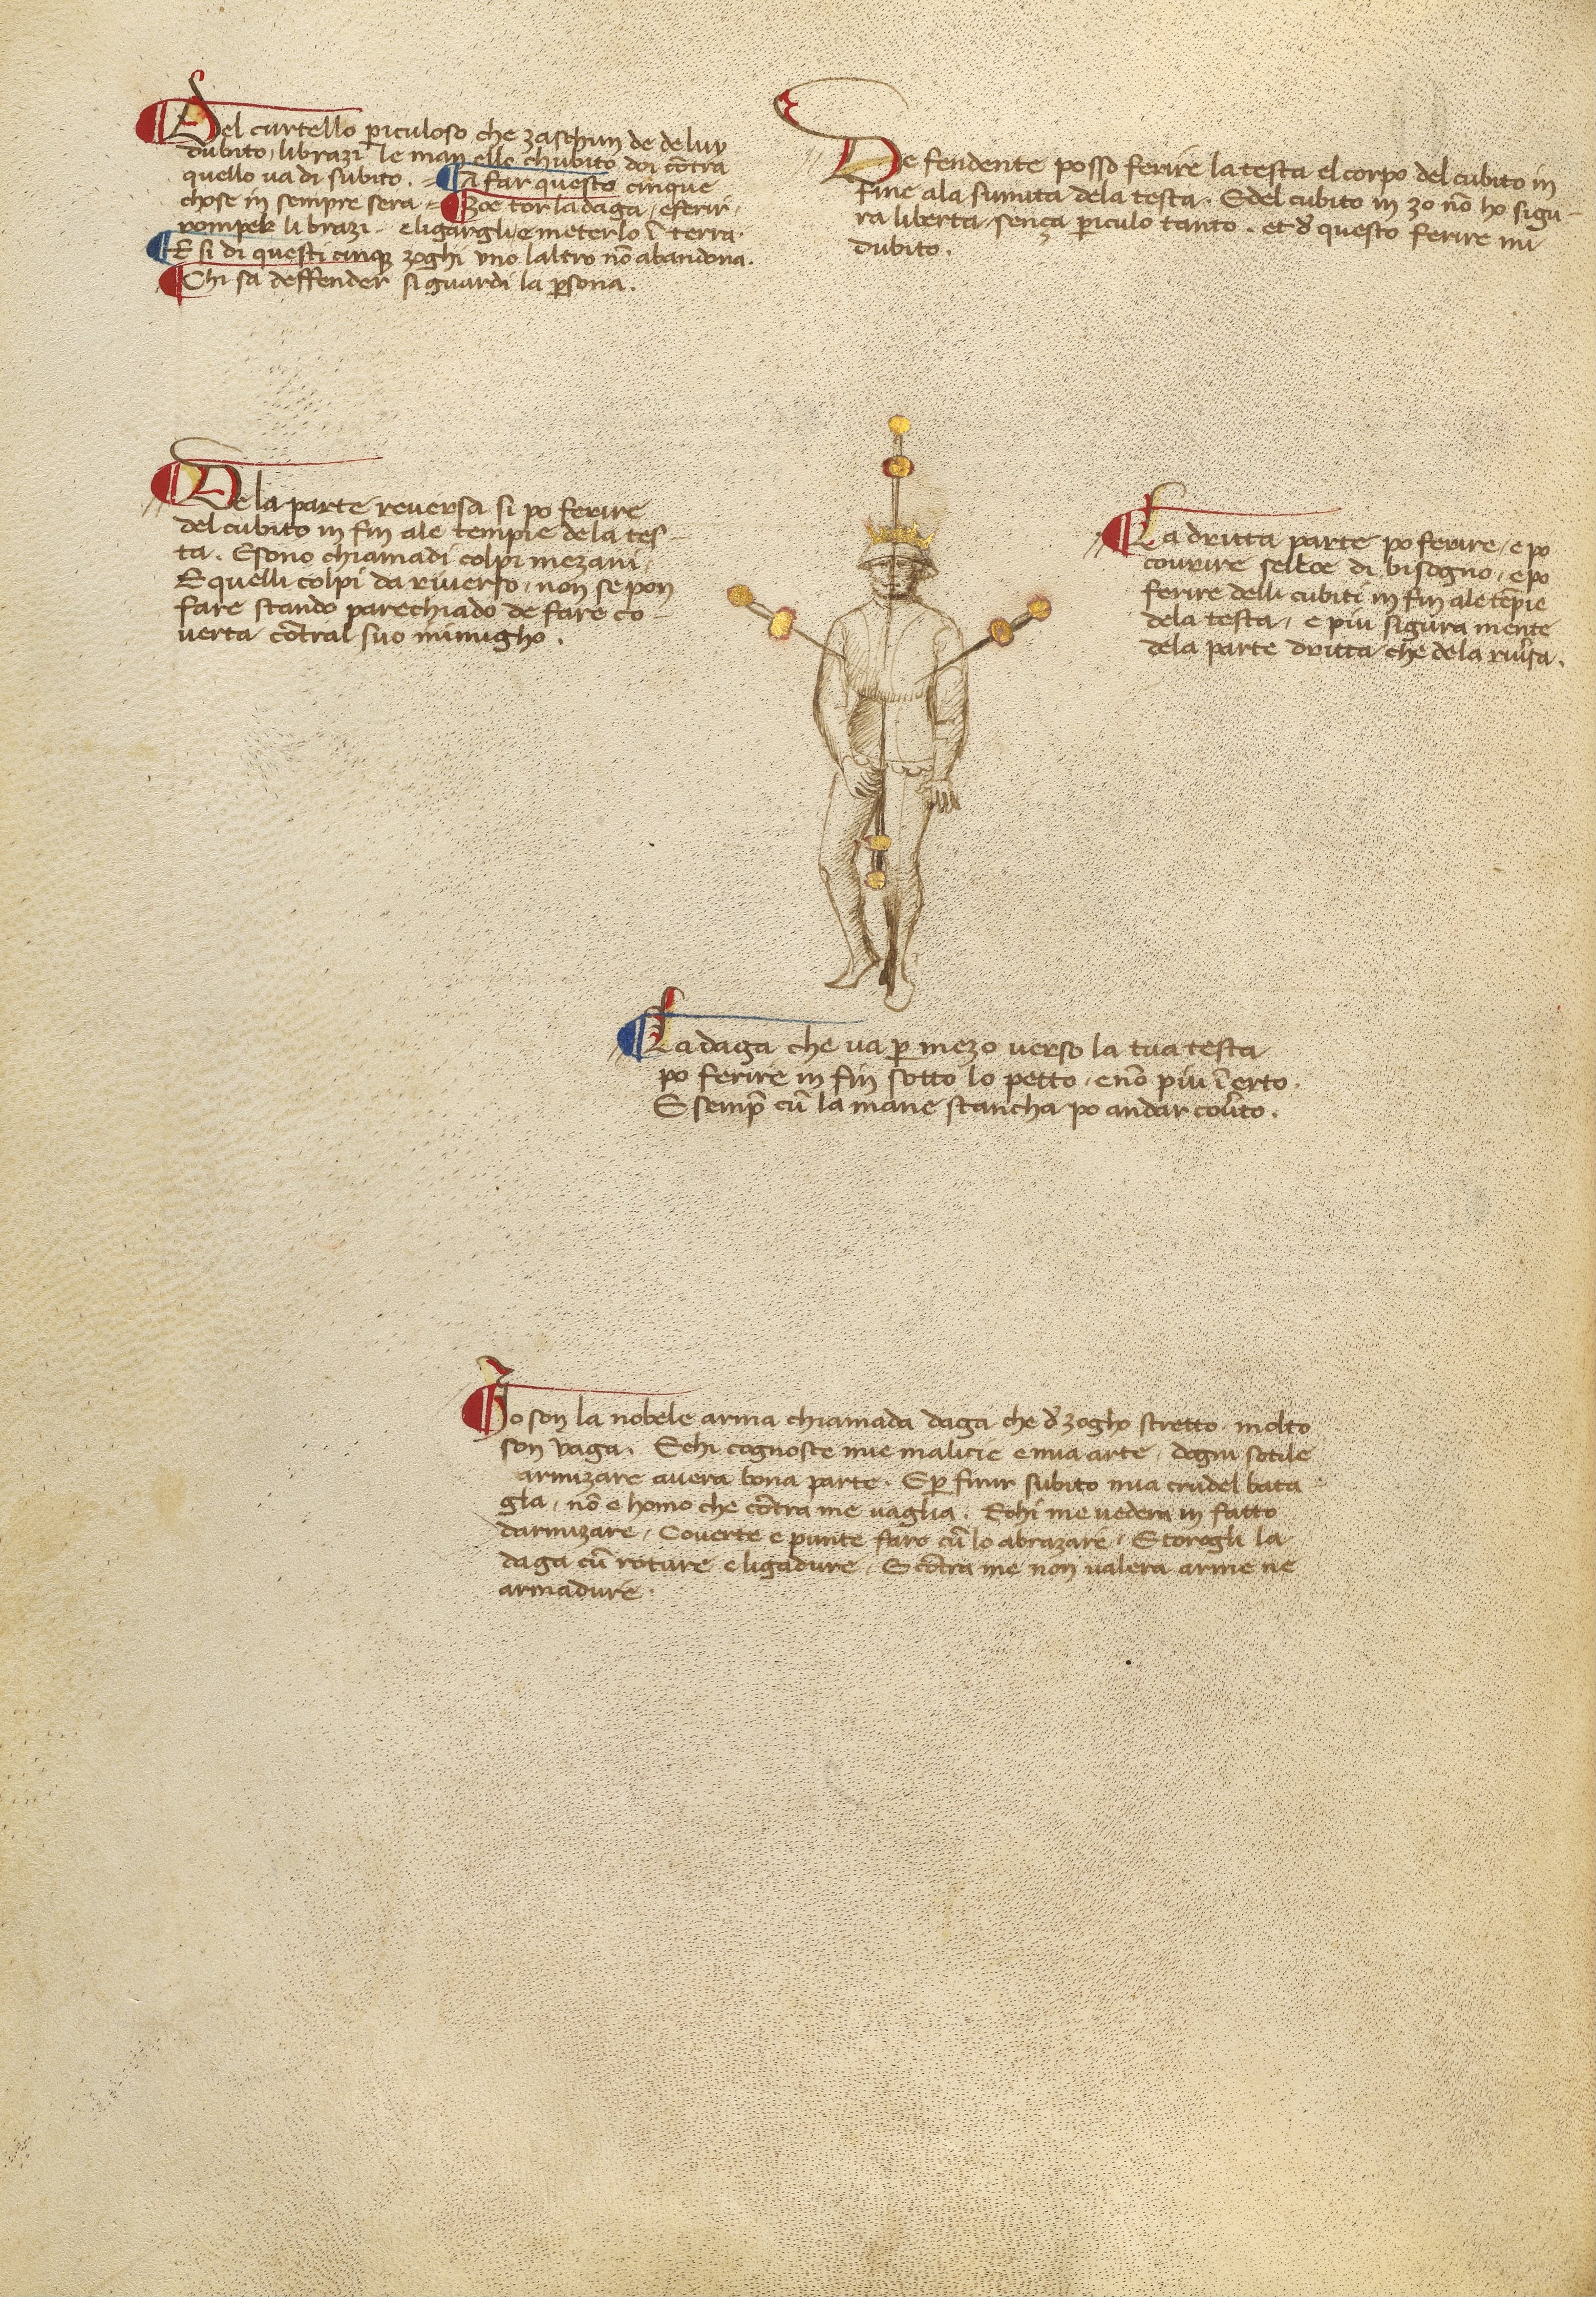 Del curtello piculoso che zaschun de de luy
dubito, li brazi le man ello chubito doi cōtra
quello va di subito. = A far questo cinque
chose in sempre sera = Zoe tor la daga, e ferir,
romper li brazi - e ligargli e meterlo ī terra.
E si di questi cinque zoghi uno laltro nō abandona.
Chi sa deffender si guardi la persona.
De fendente posso ferire la testa el corpo del cubito in
fine ala summita dela testa. E del cubito in zo nō ho sigu-
ra liberta senza piculo tanto. et de questo ferire mi
dubito.
De la parte reversa si po ferire
del cubito in fin ale tempie de la tes-
ta. E sono chiamadi colpi mezani.
E quelli colpi da riverso, non se pon
fare stando parechiado de fare co-
verta cōtral suo inimigho.
La dritta parte po ferire, e po
courire sellce di bisogno, e po
ferire delli cubiti in fin ale tēpie
dela testa, e piu sigura mente
dela parte dritta che de la riv̄sa.
La daga che va p mezo verso la tua testa
po ferire in fin sotto lo petto, e nō piu ī erto.
E semp̄ cū la mane stancha po andar cov̄to.
Io son la nobele arma chiamada daga che de zogho stretto molto
son vaga. E chi cognosce mie malicie e mia arte, dogni sotile
armizare avera bona parte. E p finir subito mia crudel bata-
gla, nō e homo che cōtra me vaglia. E chi me vedera in fatto
darmizare, Coverte e punte faro cū lo abrazare, E torogli la
daga cū roture e ligadure, E cōtra me non valera arme ne
armadure.